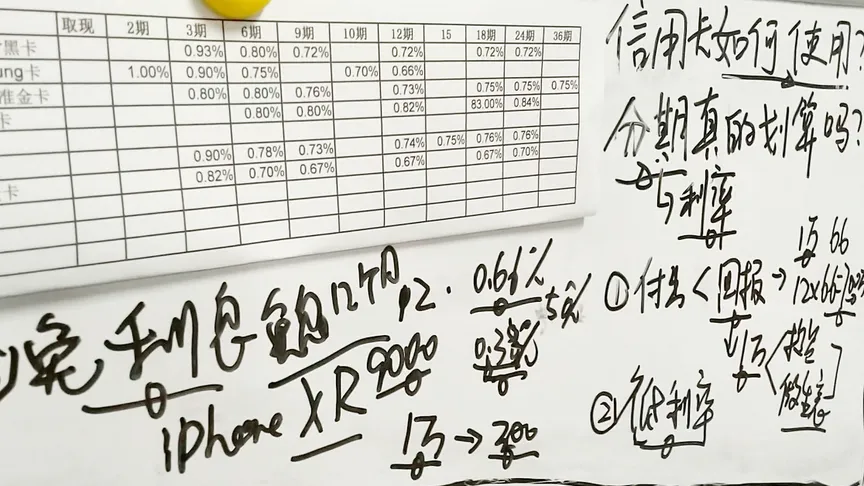 取现 2期 3期 6期 9期 10期 12期 15 18期 24期 36期
黑卡 0.93% 0.80% 0.72% 0.72% 0.72% 0.72%
ung卡 1.00% 0.90% 0.75% 0.70% 0.66%
准金卡 0.80% 0.80% 0.76% 0.73% 0.75% 0.75% 0.75%
卡 0.80% 0.80% 0.82% 83.00% 0.84%
0.90% 0.78% 0.73% 0.74% 0.75% 0.76% 0.76%
卡 0.82% 0.70% 0.67% 0.67% 0.67% 0.70%
信用卡如何使用?
分期真的划算吗?
↳利率
1万 66
①付出<回报→12×66=
↓1万
做生意
②低利率
免利息 12个月 12. 0.66% 5元
iPhone XR 9000
1万→300